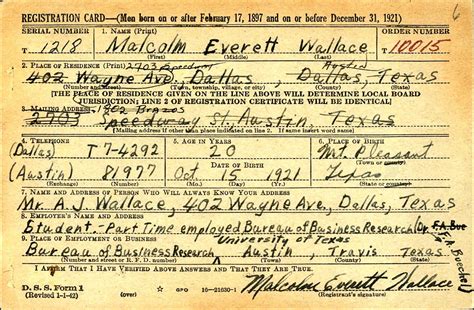 6
REGISTRATION CARD—(Men born on or after February 17, 1897 and on or before December 31, 1921)
SERIAL NUMBER 1. NAME (Print) ORDER NUMBER
T 1218 Malcolm Everett Wallace T 10015
(First) (Middle) (Last)
2. PLACE OF RESIDENCE (Print) 2703 Speedway Austin
402 Wayne Ave. Dallas, Dallas, Texas
(Number and street) (Town, township, village, or city) (County) (State)
[THE PLACE OF RESIDENCE GIVEN ON THE LINE ABOVE WILL DETERMINE LOCAL BOARD
JURISDICTION; LINE 2 OF REGISTRATION CERTIFICATE WILL BE IDENTICAL]
3. MAILING ADDRESS 1902
2703 Speedway St, Austin, Texas
[Mailing address if other than place indicated on line 2. If same insert word same]
4. TELEPHONE 5. AGE IN YEARS 6. PLACE OF BIRTH
(Dallas) T7-4292 20 Mt. Pleasant
DATE OF BIRTH (Town or county)
(Austin) 81977 Oct 15 1921 Texas
7. NAME AND ADDRESS OF PERSON WHO WILL ALWAYS KNOW YOUR ADDRESS
Mr. A. J. Wallace, 402 Wayne Ave, Dallas, Texas
8. EMPLOYER'S NAME AND ADDRESS
Student - Part Time employed Bureau of Business Research (Dr. F.A. Bue
F.A. Buechel)
9. PLACE OF EMPLOYMENT OR BUSINESS University of Texas
Bureau of Business Research Austin, Travis Texas
(Number and street or R. F. D. number) (Town) (County) (State)
I AFFIRM THAT I HAVE VERIFIED ABOVE ANSWERS AND THAT THEY ARE TRUE.
D. S. S. Form 1
(Revised 1-1-42) GPO 16—21630-1 Malcolm Everett Wallace
(Registrant's signature)